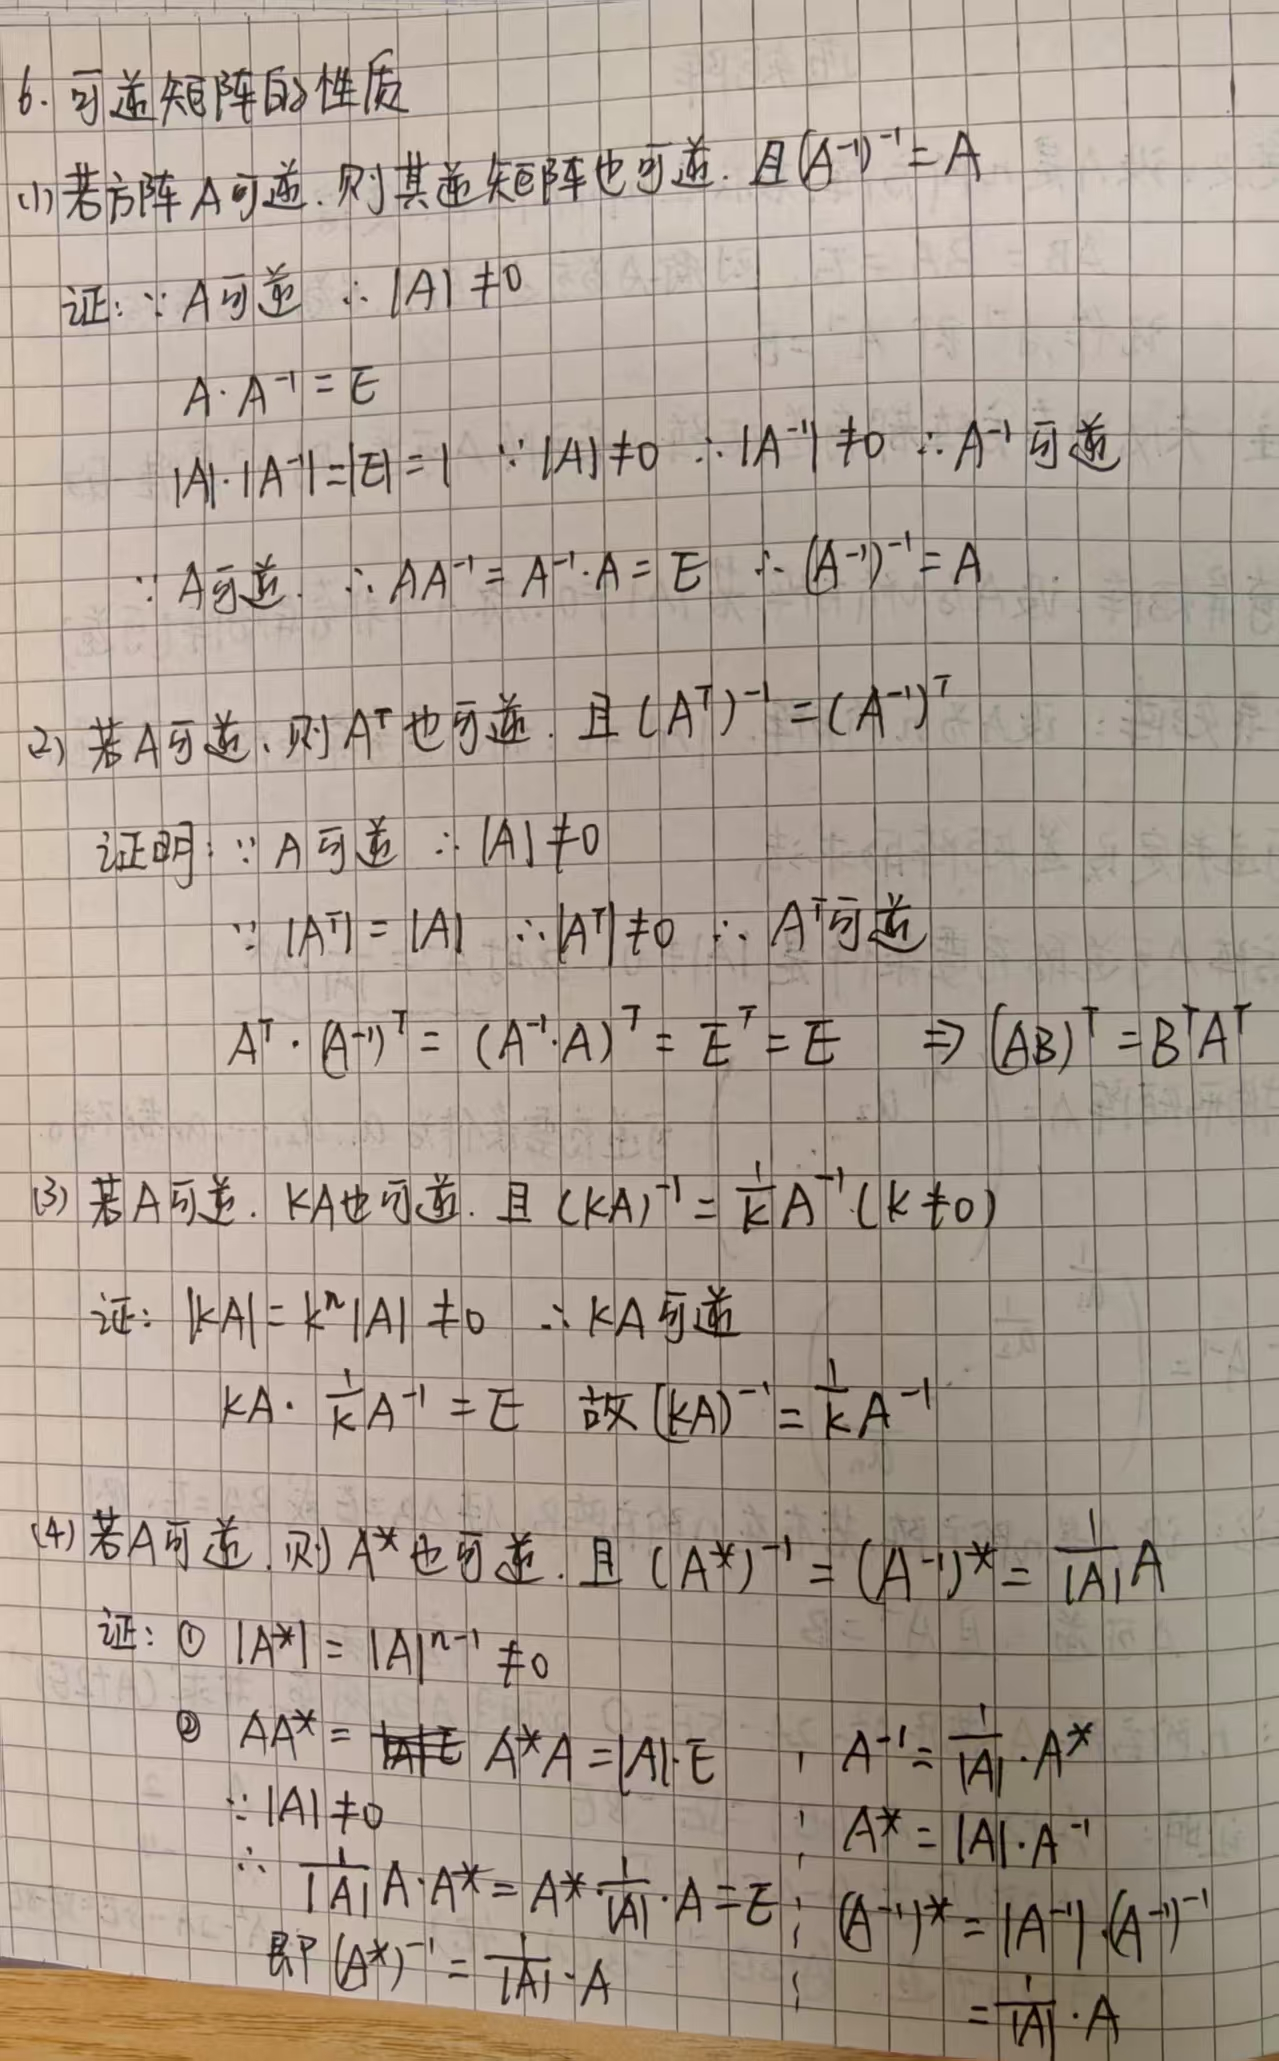 6. 可逆矩阵的性质
(1) 若方阵A可逆.则其逆矩阵也可逆.且(A⁻¹)⁻¹=A
证: ∵ A可逆 ∴ |A|≠0
A·A⁻¹=E
|A|·|A⁻¹|=|E|=1 ∵|A|≠0 ∴|A⁻¹|≠0 ∴A⁻¹可逆
∵ A可逆. ∴ AA⁻¹=A⁻¹·A=E ∴ (A⁻¹)⁻¹=A
(2) 若A可逆、则Aᵀ也可逆.且(Aᵀ)⁻¹=(A⁻¹)ᵀ
证明: ∵ A可逆 ∴ |A|≠0
∵ |Aᵀ|=|A| ∴|Aᵀ|≠0 ∴ Aᵀ可逆
Aᵀ·(A⁻¹)ᵀ=(A⁻¹·A)ᵀ=Eᵀ=E ⇒ (AB)ᵀ=BᵀAᵀ
(3) 若A可逆. KA也可逆.且(KA)⁻¹=1/K A⁻¹(k≠0)
证: |kA|=kⁿ|A|≠0 ∴KA可逆
KA·1/K A⁻¹=E 故(kA)⁻¹=1/K A⁻¹
(4) 若A可逆.则A*也可逆.且(A*)⁻¹=(A⁻¹)*=1/|A| A
证: ① |A*|=|A|ⁿ⁻¹≠0
② AA*=A*A=|A|·E
∵|A|≠0
∴ 1/|A| A·A*=A*·1/|A|·A=E
即(A*)⁻¹=1/|A|·A
A⁻¹=1/|A|·A*
A*=|A|·A⁻¹
(A⁻¹)*=|A⁻¹|·(A⁻¹)⁻¹
=1/|A|·A